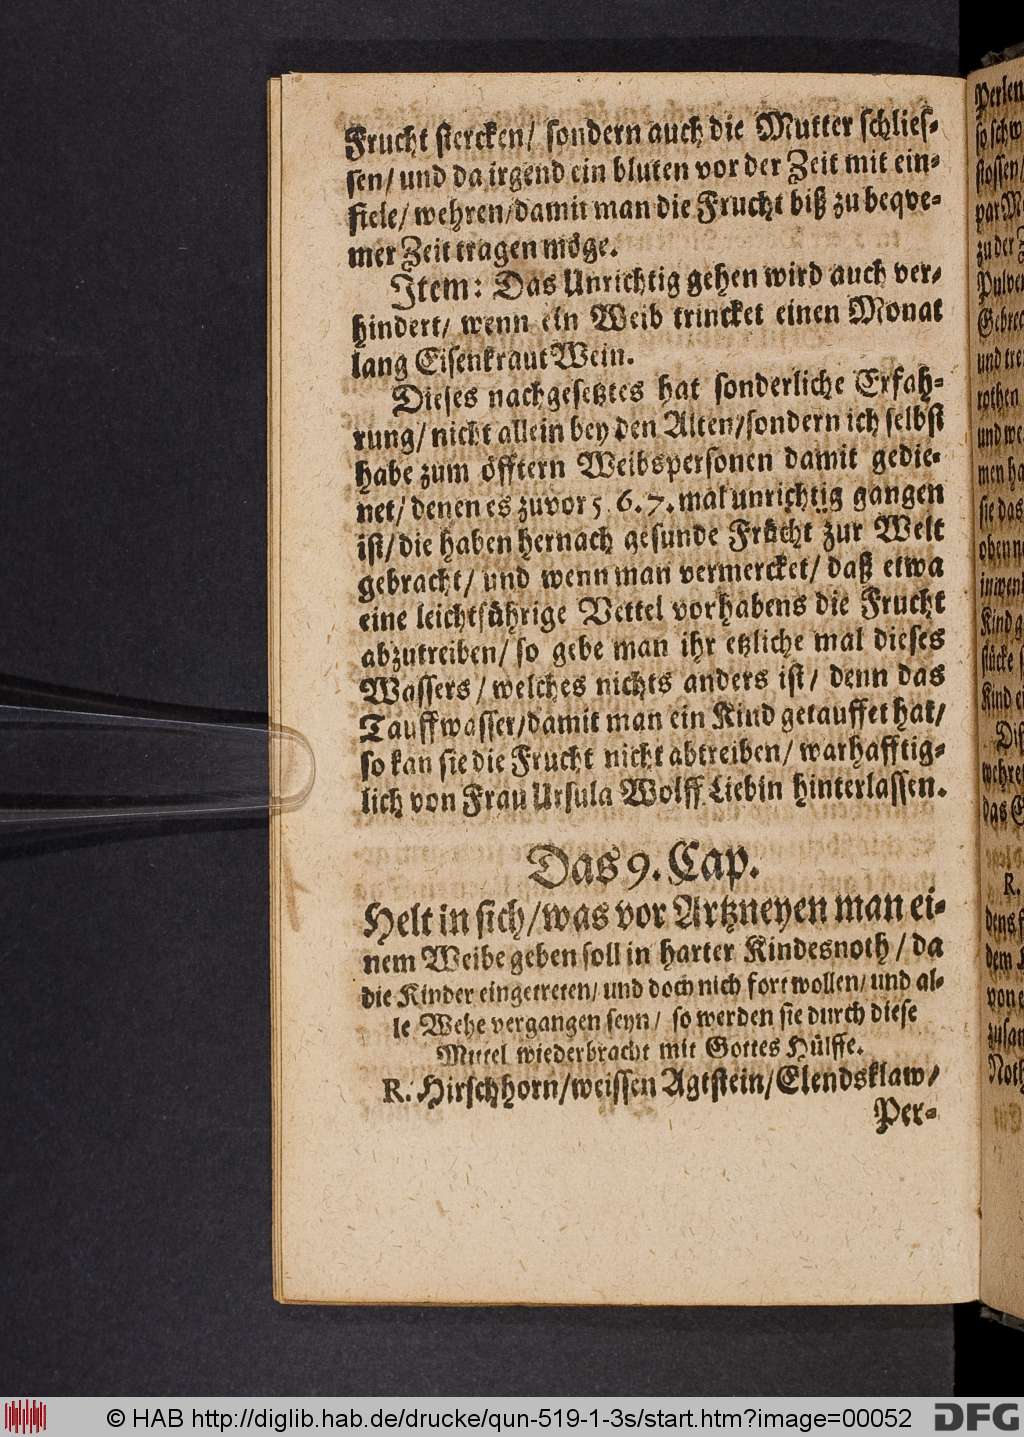 Frucht stercken/ sondern auch die Mutter schlies-
sen/ und da irgend ein bluten vor der Zeit mit ein-
fiele/ wehren/ damit man die Frucht biß zu beqve-
mer Zeit tragen möge.
Item: Das Unrichtig gehen wird auch ver-
hindert/ wenn ein Weib trincket einen Monat
lang Eisenkraut Wein.
Dieses nachgesetztes hat sonderliche Erfah-
rung/ nicht allein bey den Alten/ sondern ich selbst
habe zum öfftern Weibspersonen damit gedie-
net/ denen es zuvor 5 6. 7. mal unrichtig gangen
ist/ die haben hernach gesunde Frücht zur Welt
gebracht/ und wenn man vermercket/ daß etwa
eine leichtfährige Vettel vorhabens die Frucht
abzutreiben/ so gebe man ihr etzliche mal dieses
Wassers/ welches nichts anders ist/ denn das
Tauffwasser/ damit man ein Kind getauffet hat/
so kan sie die Frucht nicht abtreiben/ warhafftig-
lich von Frau Ursula Wolff Liebin hinterlassen.
Das 9. Cap.
Helt in sich/ was vor Artzneyen man ei-
nem Weibe geben soll in harter Kindesnoth/ da
die Kinder eingetreten/ und doch nich fort wollen/ und al-
le Wehe vergangen seyn/ so werden sie durch diese
Mittel wiederbracht mit Gottes Hülffe.
R. Hirschhorn/ weissen Agtstein/ Elendsklaw/
Per-
Perlen
stossen/
par
zu der
Pulver
rothen
sie das
Kind
stücke
Kind
das
R.
dem
von
© HAB http://diglib.hab.de/drucke/qun-519-1-3s/start.htm?image=00052
DFG